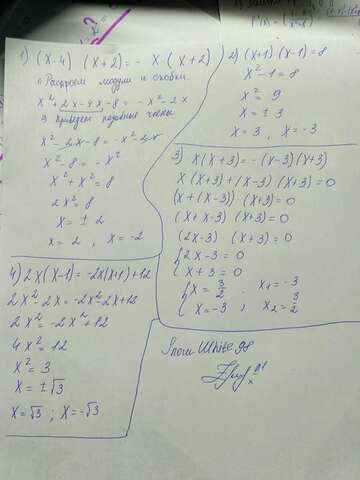 1) (x-4) (x+2) = - x · (x+2)
1) Раскроем модули и скобки
x² + 2x - 4x - 8 = - x² - 2x
2) Приведем подобные члены
x² - 2x - 8 = -x² - 2x
x² - 8 = - x²
x² + x² = 8
2x² = 8
x = ± 2
x = 2 , x = -2
2) (x+1) (x-1) = 8
x² - 1 = 8
x² = 9
x = ± 3
x = 3 , x = -3
3) x(x+3) = -(x-3)(x+3)
x(x+3) + (x-3) (x+3) = 0
(x + (x-3)) (x+3) = 0
(x + x-3) (x+3) = 0
(2x-3) (x+3) = 0
{ 2x-3 = 0
x + 3 = 0
{ x = 3/2 . x₁ = -3
x = -3 ; x₂ = 3/2
4) 2x(x-1) = -2x(x+1)+12
2x² - 2x = -2x² - 2x + 12
2x² = -2x² + 12
4x² = 12
x² = 3
x = ±√3
x = √3 ; x = -√3